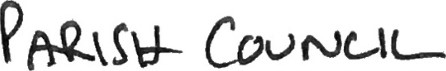 PARISH COUNCIL